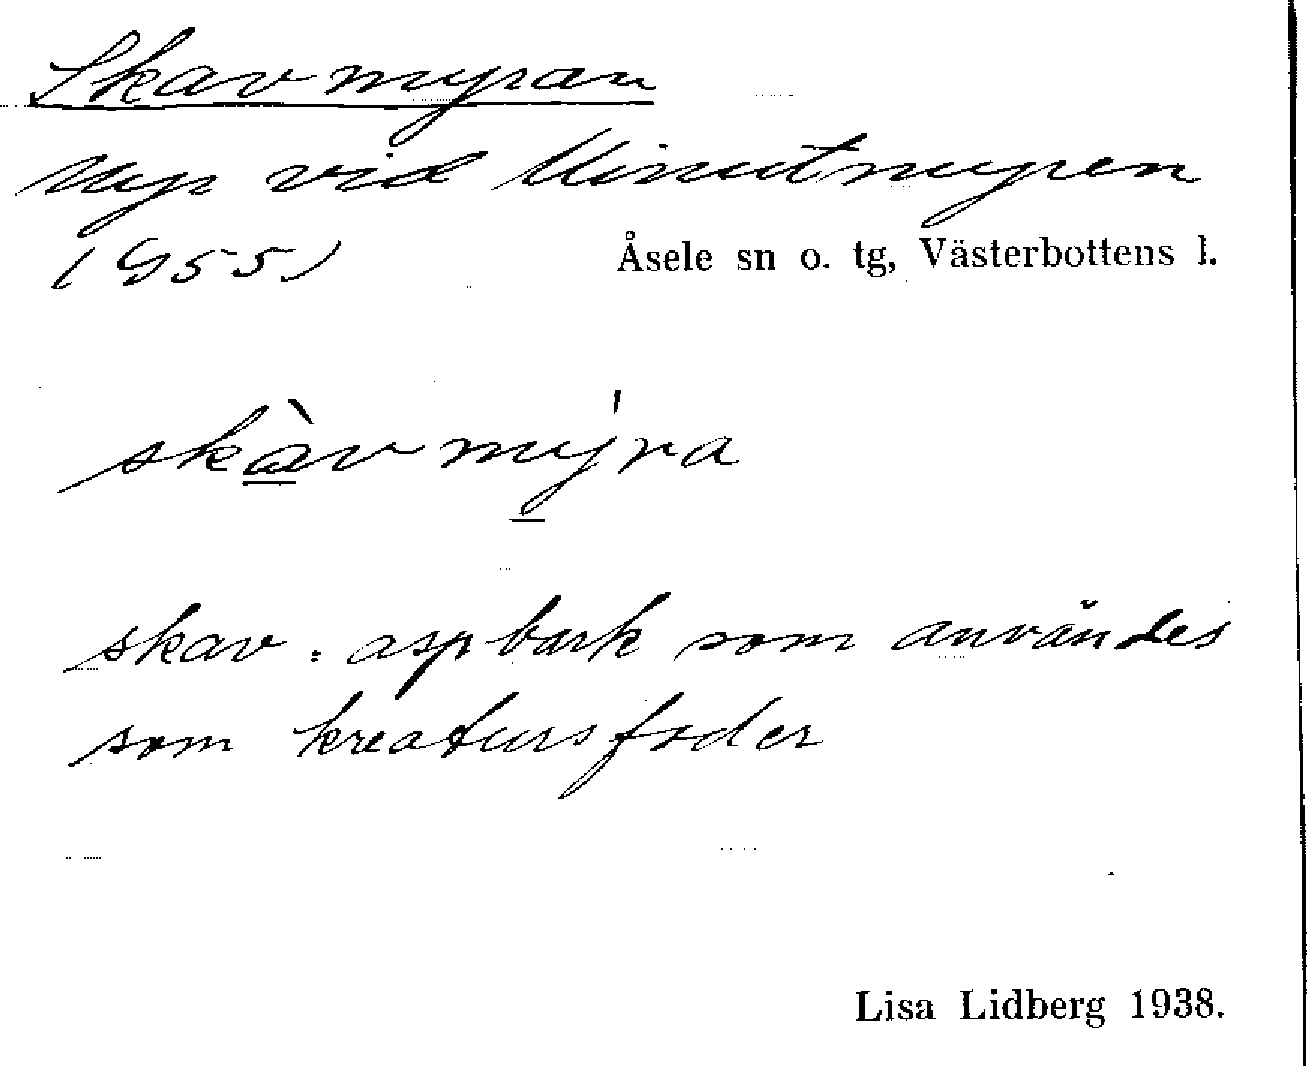 Skavmyran
Myr vid Minutmyren
(G55) Åsele sn o. tg, Västerbottens l.
skàvmy̍ra
skav = aspbark som användes
som kreatursfoder
Lisa Lidberg 1938.